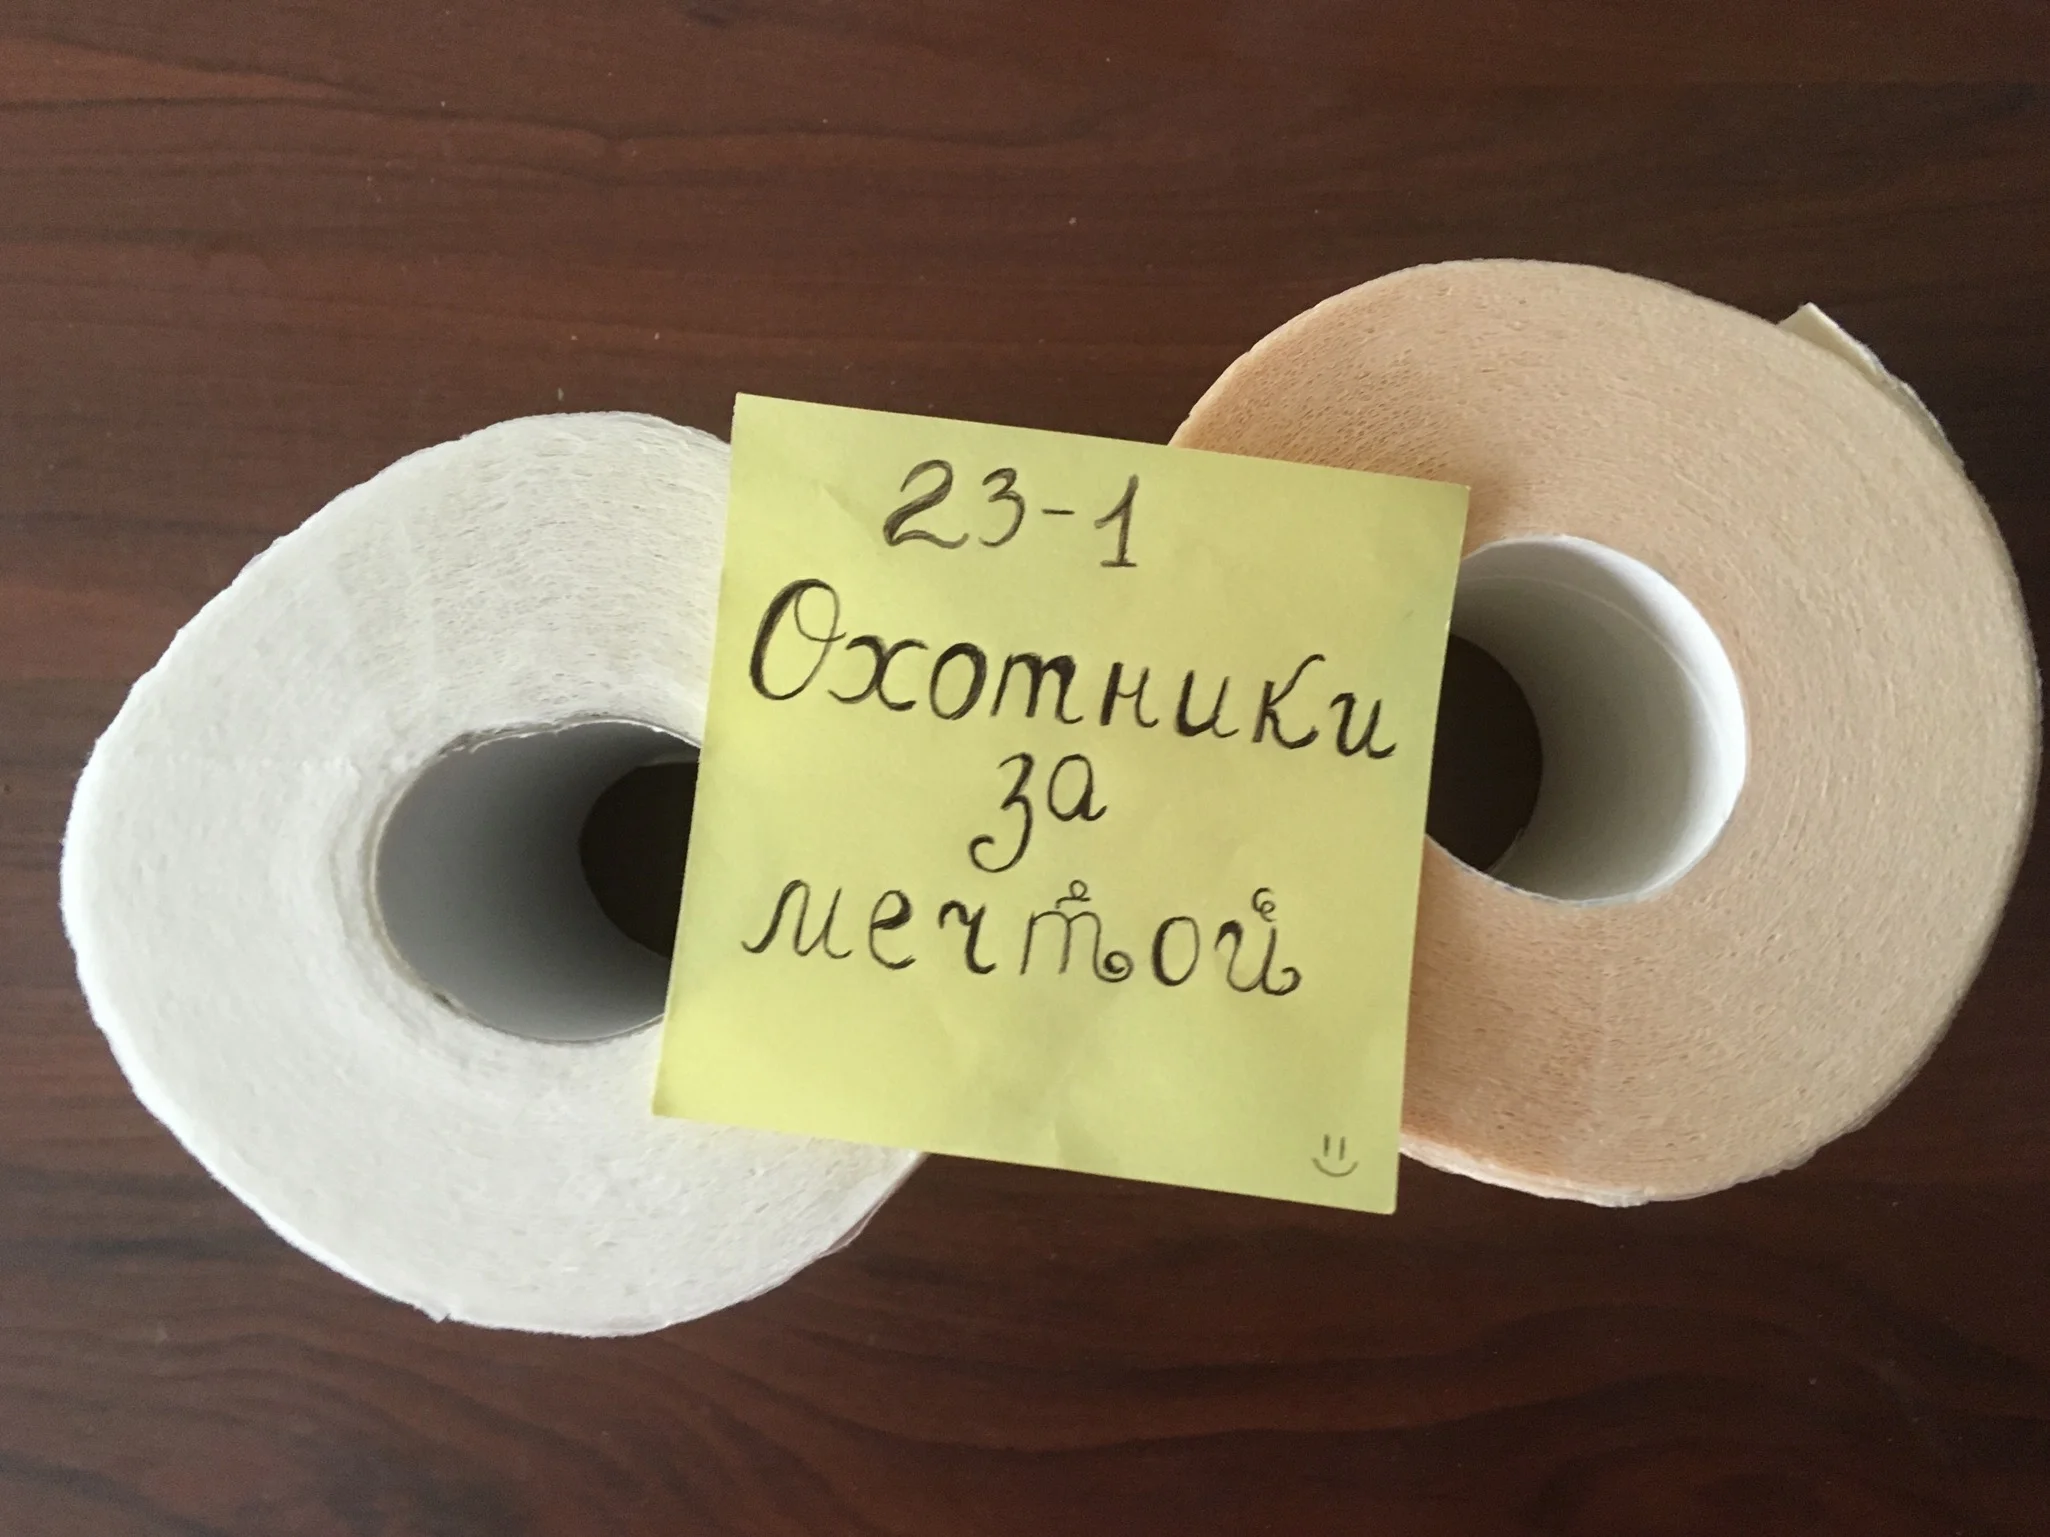 23-1
Охотники
за
мечтой